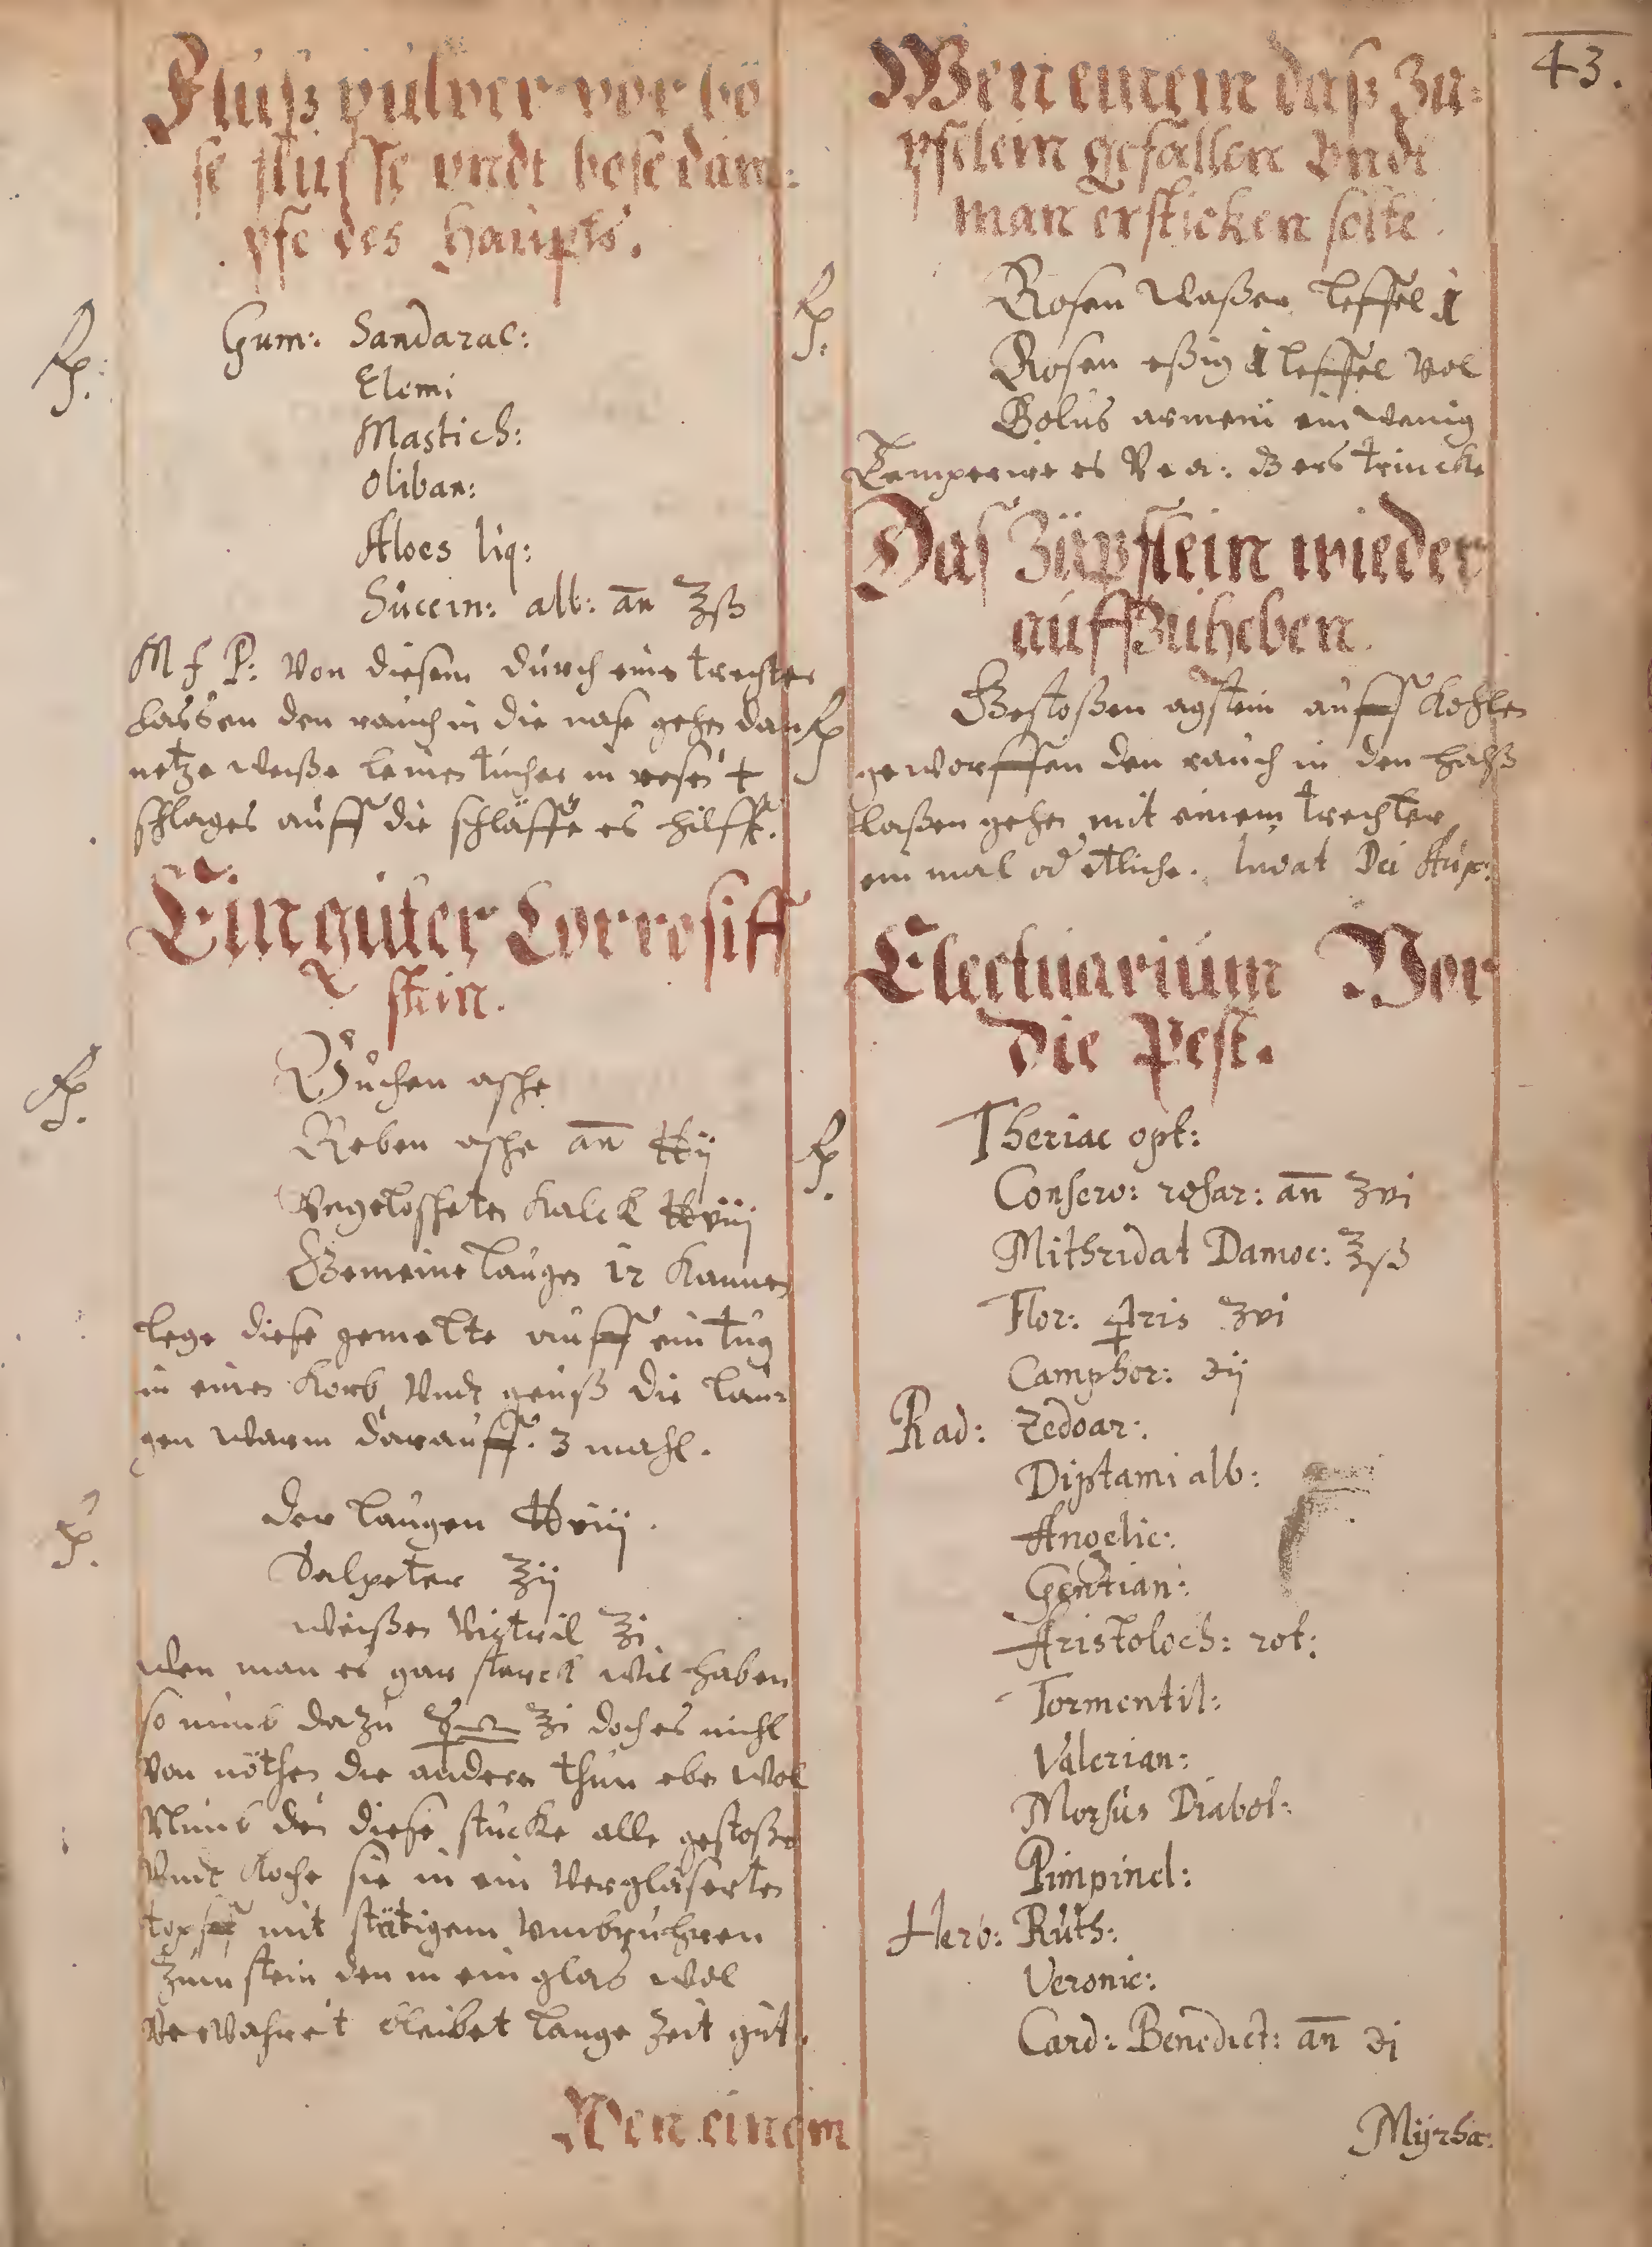 43.
Fluß pulver vor bö
se flusse vndt bose dam:
pfe des Haupts.
Rp: Gum: Sandarac:
Elemi
Mastich:
Oliban:
Aloes liq:
Succin: alb: an ℥ß
M f P: Von diesem durch eine trechter
lassen den rauch in die nase gehen dan
netze weiße leinen tucher in rosen +
schlages auff die schläffe es hilfft.
Ein guter Corrosiff
stein.
Rp. Buchen asche
Reben asche an ℔ ij
Vngeloscheten Kalck ℔ viij
Gemeine laugen 12 Kannen
lege diese gemelte auff ein tug
in einen Korb Vndt geuß die lau-
gen warm darauff. 3 mahl.
Rp. der laugen ℔ viij.
Salpeter ℥ij
weißen Vigtril ℥i
Wen man es gar starck wil haben
so nimb dazu ℥i doch es nicht
von nöthen die andern thun eben wol
Nimb den diese stucke alle gestoßen
Vndt koche sie in ein Verglaserten
topff mit stätigem Vmbruhren
zum stein den in ein glas wol
verwahret bleibet lange Zeit gut.
Wen einem
Wen einem daß Zu-
pflein gefallen Vndt
man ersticken solte.
Rp. Rosen waßer leffel 1
Rosen eßig 1 leffel vol
Bolus armeni ein wenig
Temperire es trincke
Das Züpflein wieder
auffZuheben.
Rp Gestoßen agstein auff Kohlen
geworffen den rauch in den halß
laßen gehen mit einem trechter
ein mal od etliche. Iuvat Dei Aux:
Electuarium Vor
die Pest.
Rp. Theriac opt:
Conserv: rosar: an ʒvi
Mithridat Damoc: ℥ß
Flor: ♃ris ʒvi
Camphor: ℈ij
Rad: Zedoar:
Diptami alb:
Angelic:
Gentian:
Aristoloch: rot:
Tormentil:
Valerian:
Morsus Diabol:
Pimpinel:
Herb: Ruth:
Veronic:
Card: Benedict: an ℈i
Myrha: